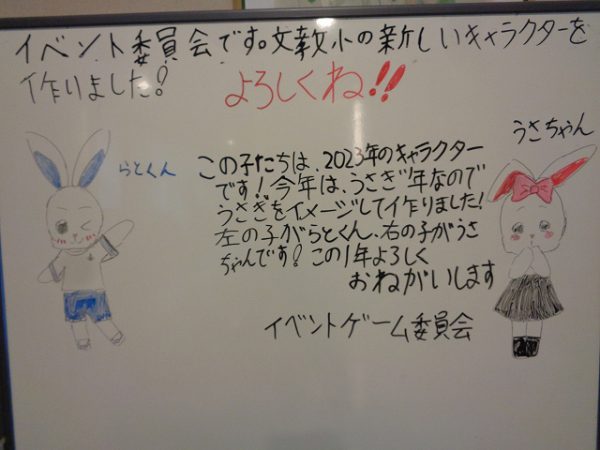 イベント委員会です。文教小の新しいキャラクターを
作りました!
よろしくね!!
うさちゃん
らとくん
この子たちは、2023年のキャラクター
です!今年は、うさぎ年なので
うさぎをイメージして作りました!
左の子がらとくん、右の子がうさ
ちゃんです!この1年よろしく
おねがいします
イベントゲーム委員会